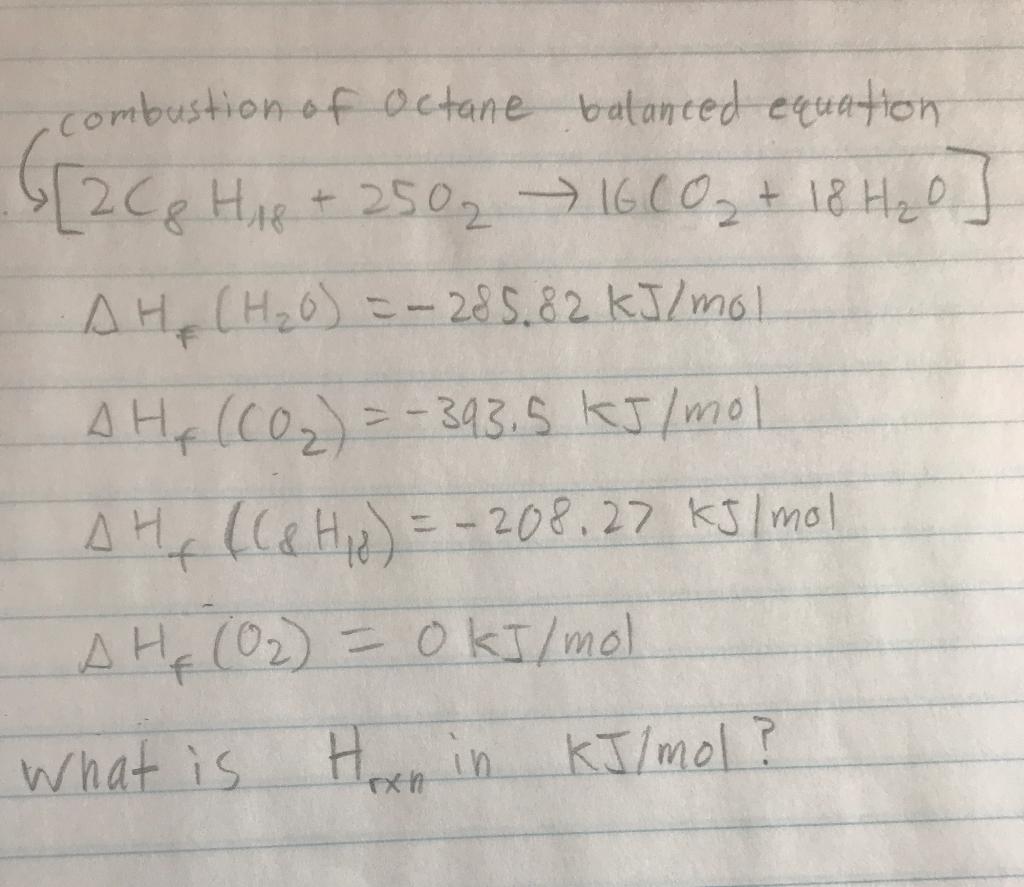 combustion of octane balanced equation
[2C₈H₁₈ + 25O₂ → 16CO₂ + 18H₂O]
ΔH_f (H₂O) = -285.82 kJ/mol
ΔH_f (CO₂) = -393.5 kJ/mol
ΔH_f (C₈H₁₈) = -208.27 kJ/mol
ΔH_f (O₂) = 0 kJ/mol
what is H_rxn in kJ/mol?